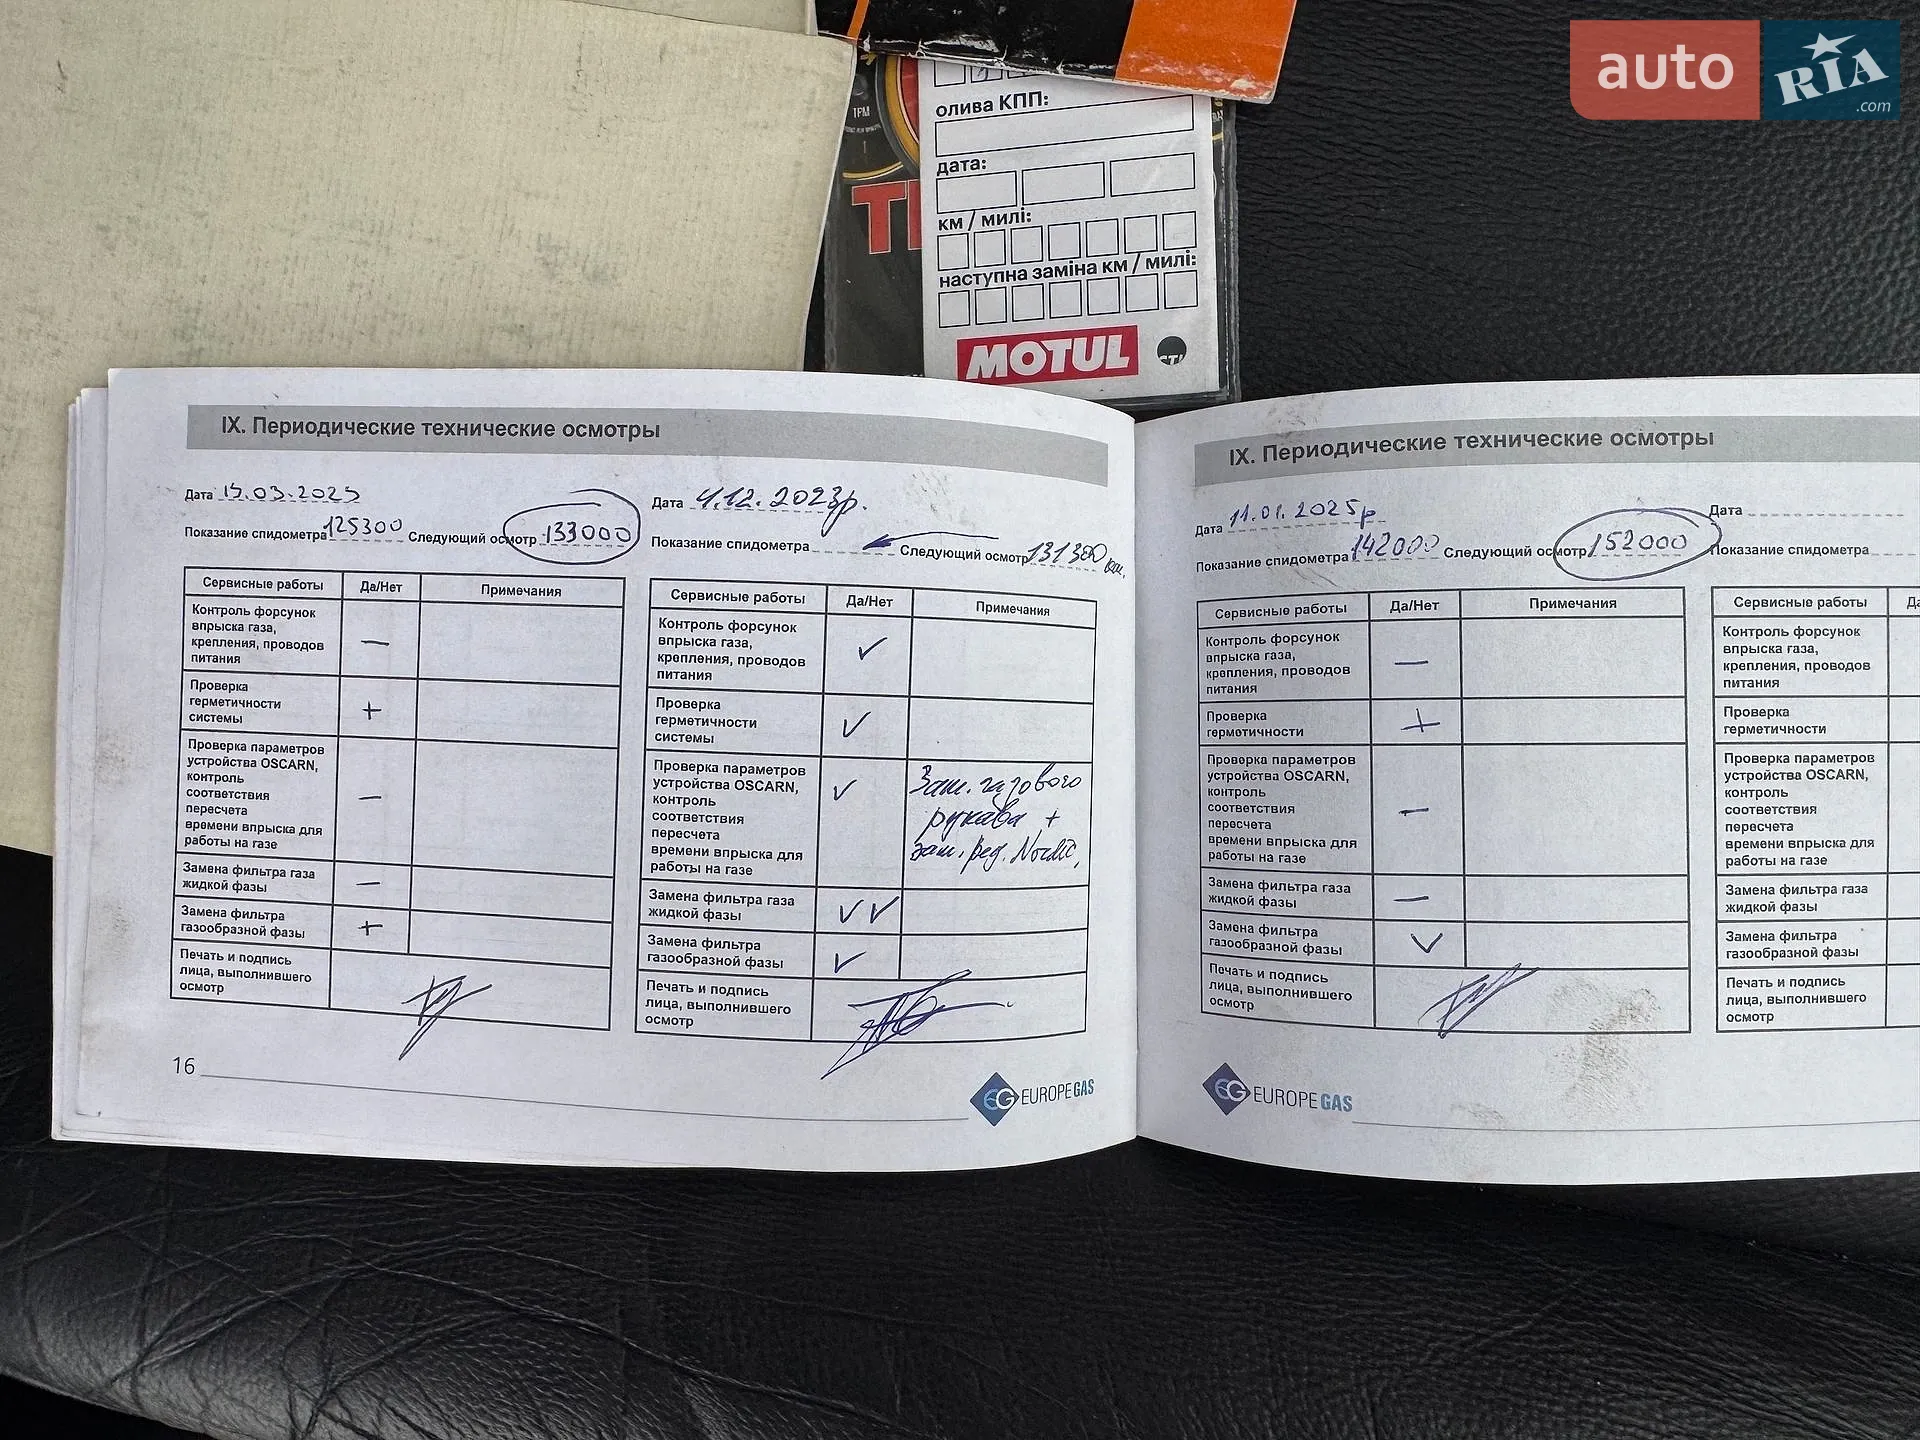 auto
RIA
.com
TFM
олива КПП:
дата:
км / милі:
наступна заміна км / милі:
MOTUL
IX. Периодические технические осмотры
Дата
Показание спидометра 125300 Следующий осмотр 133000
Сервисные работы Да/Нет Примечания
Контроль форсунок
впрыска газа,
крепления, проводов
питания
—
Проверка
герметичности
системы
+
Проверка параметров
устройства OSCARN,
контроль
соответствия
пересчета
времени впрыска для
работы на газе
—
Замена фильтра газа
жидкой фазы
—
Замена фильтра
газообразной фазы
+
Печать и подпись
лица, выполнившего
осмотр
16
Дата 4.12.2023р.
Показание спидометра Следующий осмотр 131300 км.
Сервисные работы Да/Нет Примечания
Контроль форсунок
впрыска газа,
крепления, проводов
питания
✓
Проверка
герметичности
системы
✓
Проверка параметров
устройства OSCARN,
контроль
соответствия
пересчета
времени впрыска для
работы на газе
✓
Зам. газового
рукава +
зам. ред. Nordic,
Замена фильтра газа
жидкой фазы
✓✓
Замена фильтра
газообразной фазы
✓
Печать и подпись
лица, выполнившего
осмотр
EG EUROPEGAS
IX. Периодические технические осмотры
Дата 11.01.2025р
Показание спидометра 142000 Следующий осмотр 152000
Сервисные работы Да/Нет Примечания
Контроль форсунок
впрыска газа,
крепления, проводов
питания
—
Проверка
герметичности
+
Проверка параметров
устройства OSCARN,
контроль
соответствия
пересчета
времени впрыска для
работы на газе
—
Замена фильтра газа
жидкой фазы
—
Замена фильтра
газообразной фазы
✓
Печать и подпись
лица, выполнившего
осмотр
EG EUROPEGAS
Дата
Показание спидометра
Сервисные работы
Контроль форсунок
впрыска газа,
крепления, проводов
питания
Проверка
герметичности
Проверка параметров
устройства OSCARN,
контроль
соответствия
пересчета
времени впрыска для
работы на газе
Замена фильтра газа
жидкой фазы
Замена фильтра
газообразной фазы
Печать и подпись
лица, выполнившего
осмотр